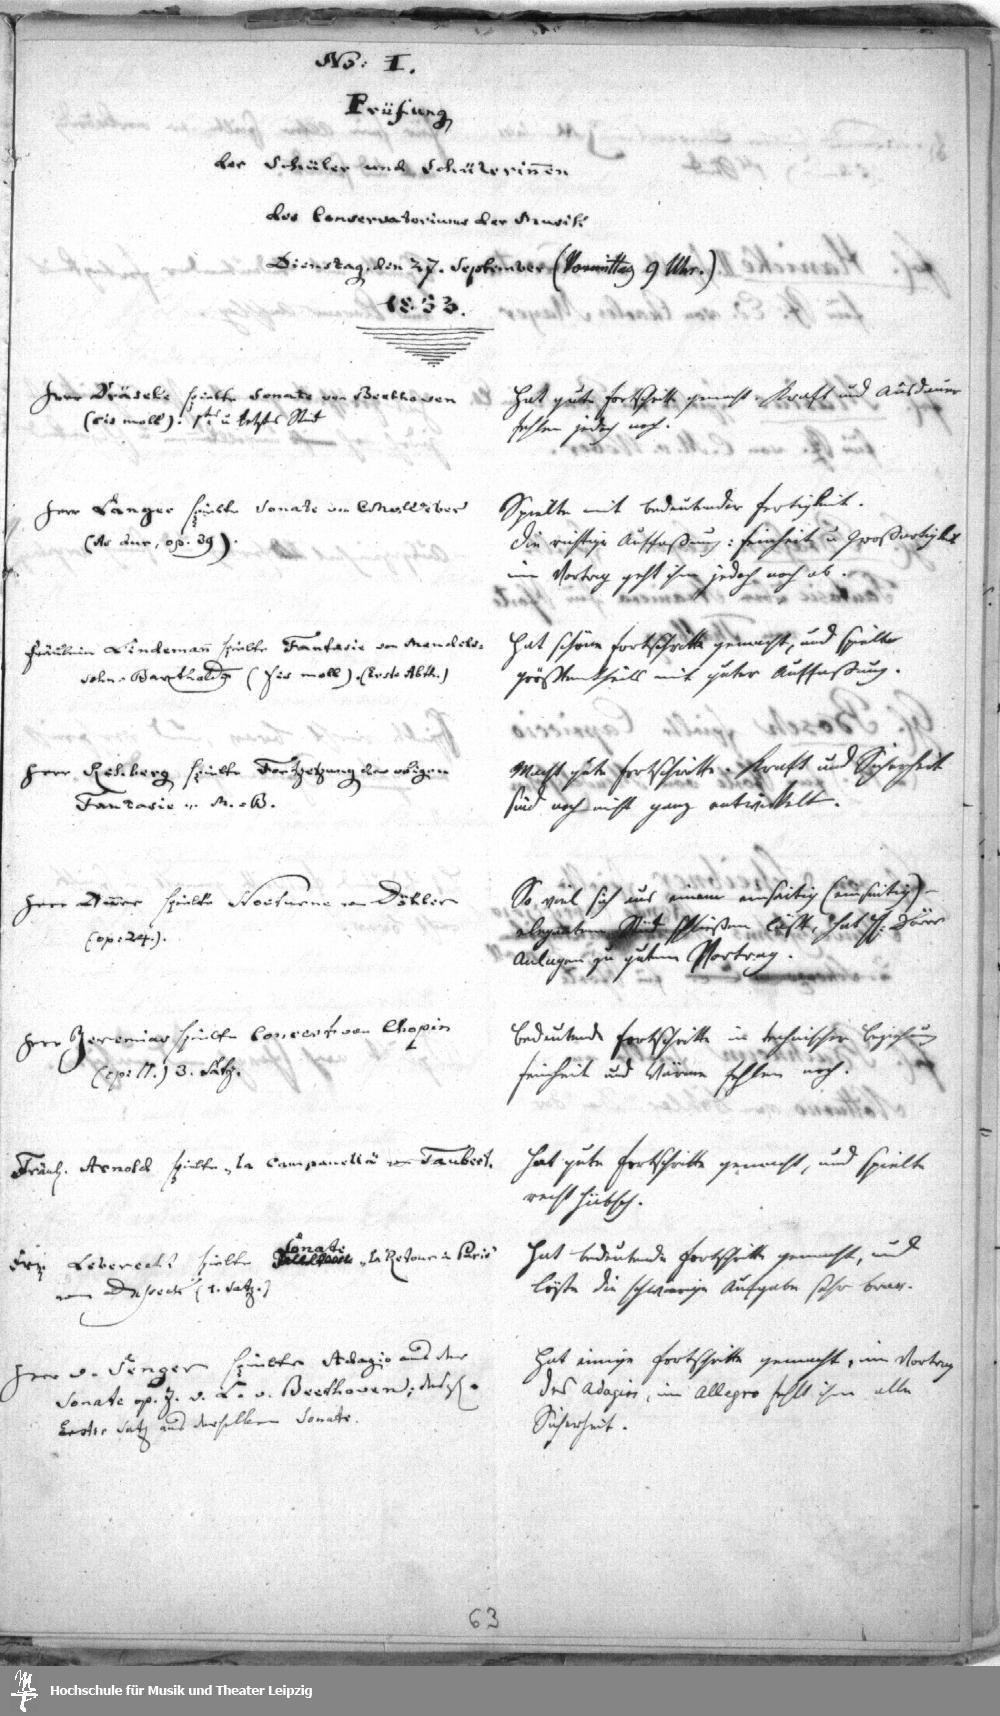 No: I.
Prüfung
der Schüler und Schülerinnen
des Conservatoriums der Musik
Dienstag, den 27. September (Vormittag 9 Uhr.)
1853.
Herr Dräseke spielte Sonate von Beethoven
(cis moll). 1tes u letztes Stück
Hat gute Fortschritte gemacht. Kraft und Ausdauer
fehlen jedoch noch.
Herr Langer spielte Sonate von C M v Weber
(As dur, op. 39).
Spielte mit bedeutender Fertigkeit.
Die richtige Auffaßung: Feinheit u Großartigkeit
im Vortrag geht ihm jedoch noch ab.
Fräulein Lindemann spielte Fantasie von Mendels-
sohn-Bartholdy (Fis moll). (Erste Abth.)
Hat schöne Fortschritte gemacht, und spielte
größtentheils mit guter Auffaßung.
Herr Rehberg spielte Fortsetzung der obigen
Fantasie v. M.-B.
Macht gute Fortschritte. Kraft und Sicherheit
sind noch nicht ganz entwickelt.
Herr Dürre spielte Nocturne von Döhler
(op: 24.).
So viel sich aus einem einseitig (einseitig)-
eleganten Stück schließen läßt, hat H.
Anlagen zu gutem Vortrag.
Herr Jeremias spielte Concert von Chopin
(op: 11.) 3. Satz.
Bedeutende Fortschritte in technischer Beziehung
Feinheit und Wärme fehlen noch.
Fräul. Arnold spielte „la campanella" von Taubert.
Hat gute Fortschritte gemacht, und spielte
recht hübsch.
Frl. Leberecht spielte Sonate „Le Retour à Paris"
von Dussek (1. Satz.)
Hat bedeutende Fortschritte gemacht, und
löste die schwierige Aufgabe sehr brav.
Herr v. Senger spielte Adagio aus der
Sonate op. 7. v. L. v. Beethoven;
Erster Satz aus derselben Sonate.
Hat einige Fortschritte gemacht, im Vortrag
des Adagios, im Allegro fehlt ihm alle
Sicherheit.
63
Hochschule für Musik und Theater Leipzig